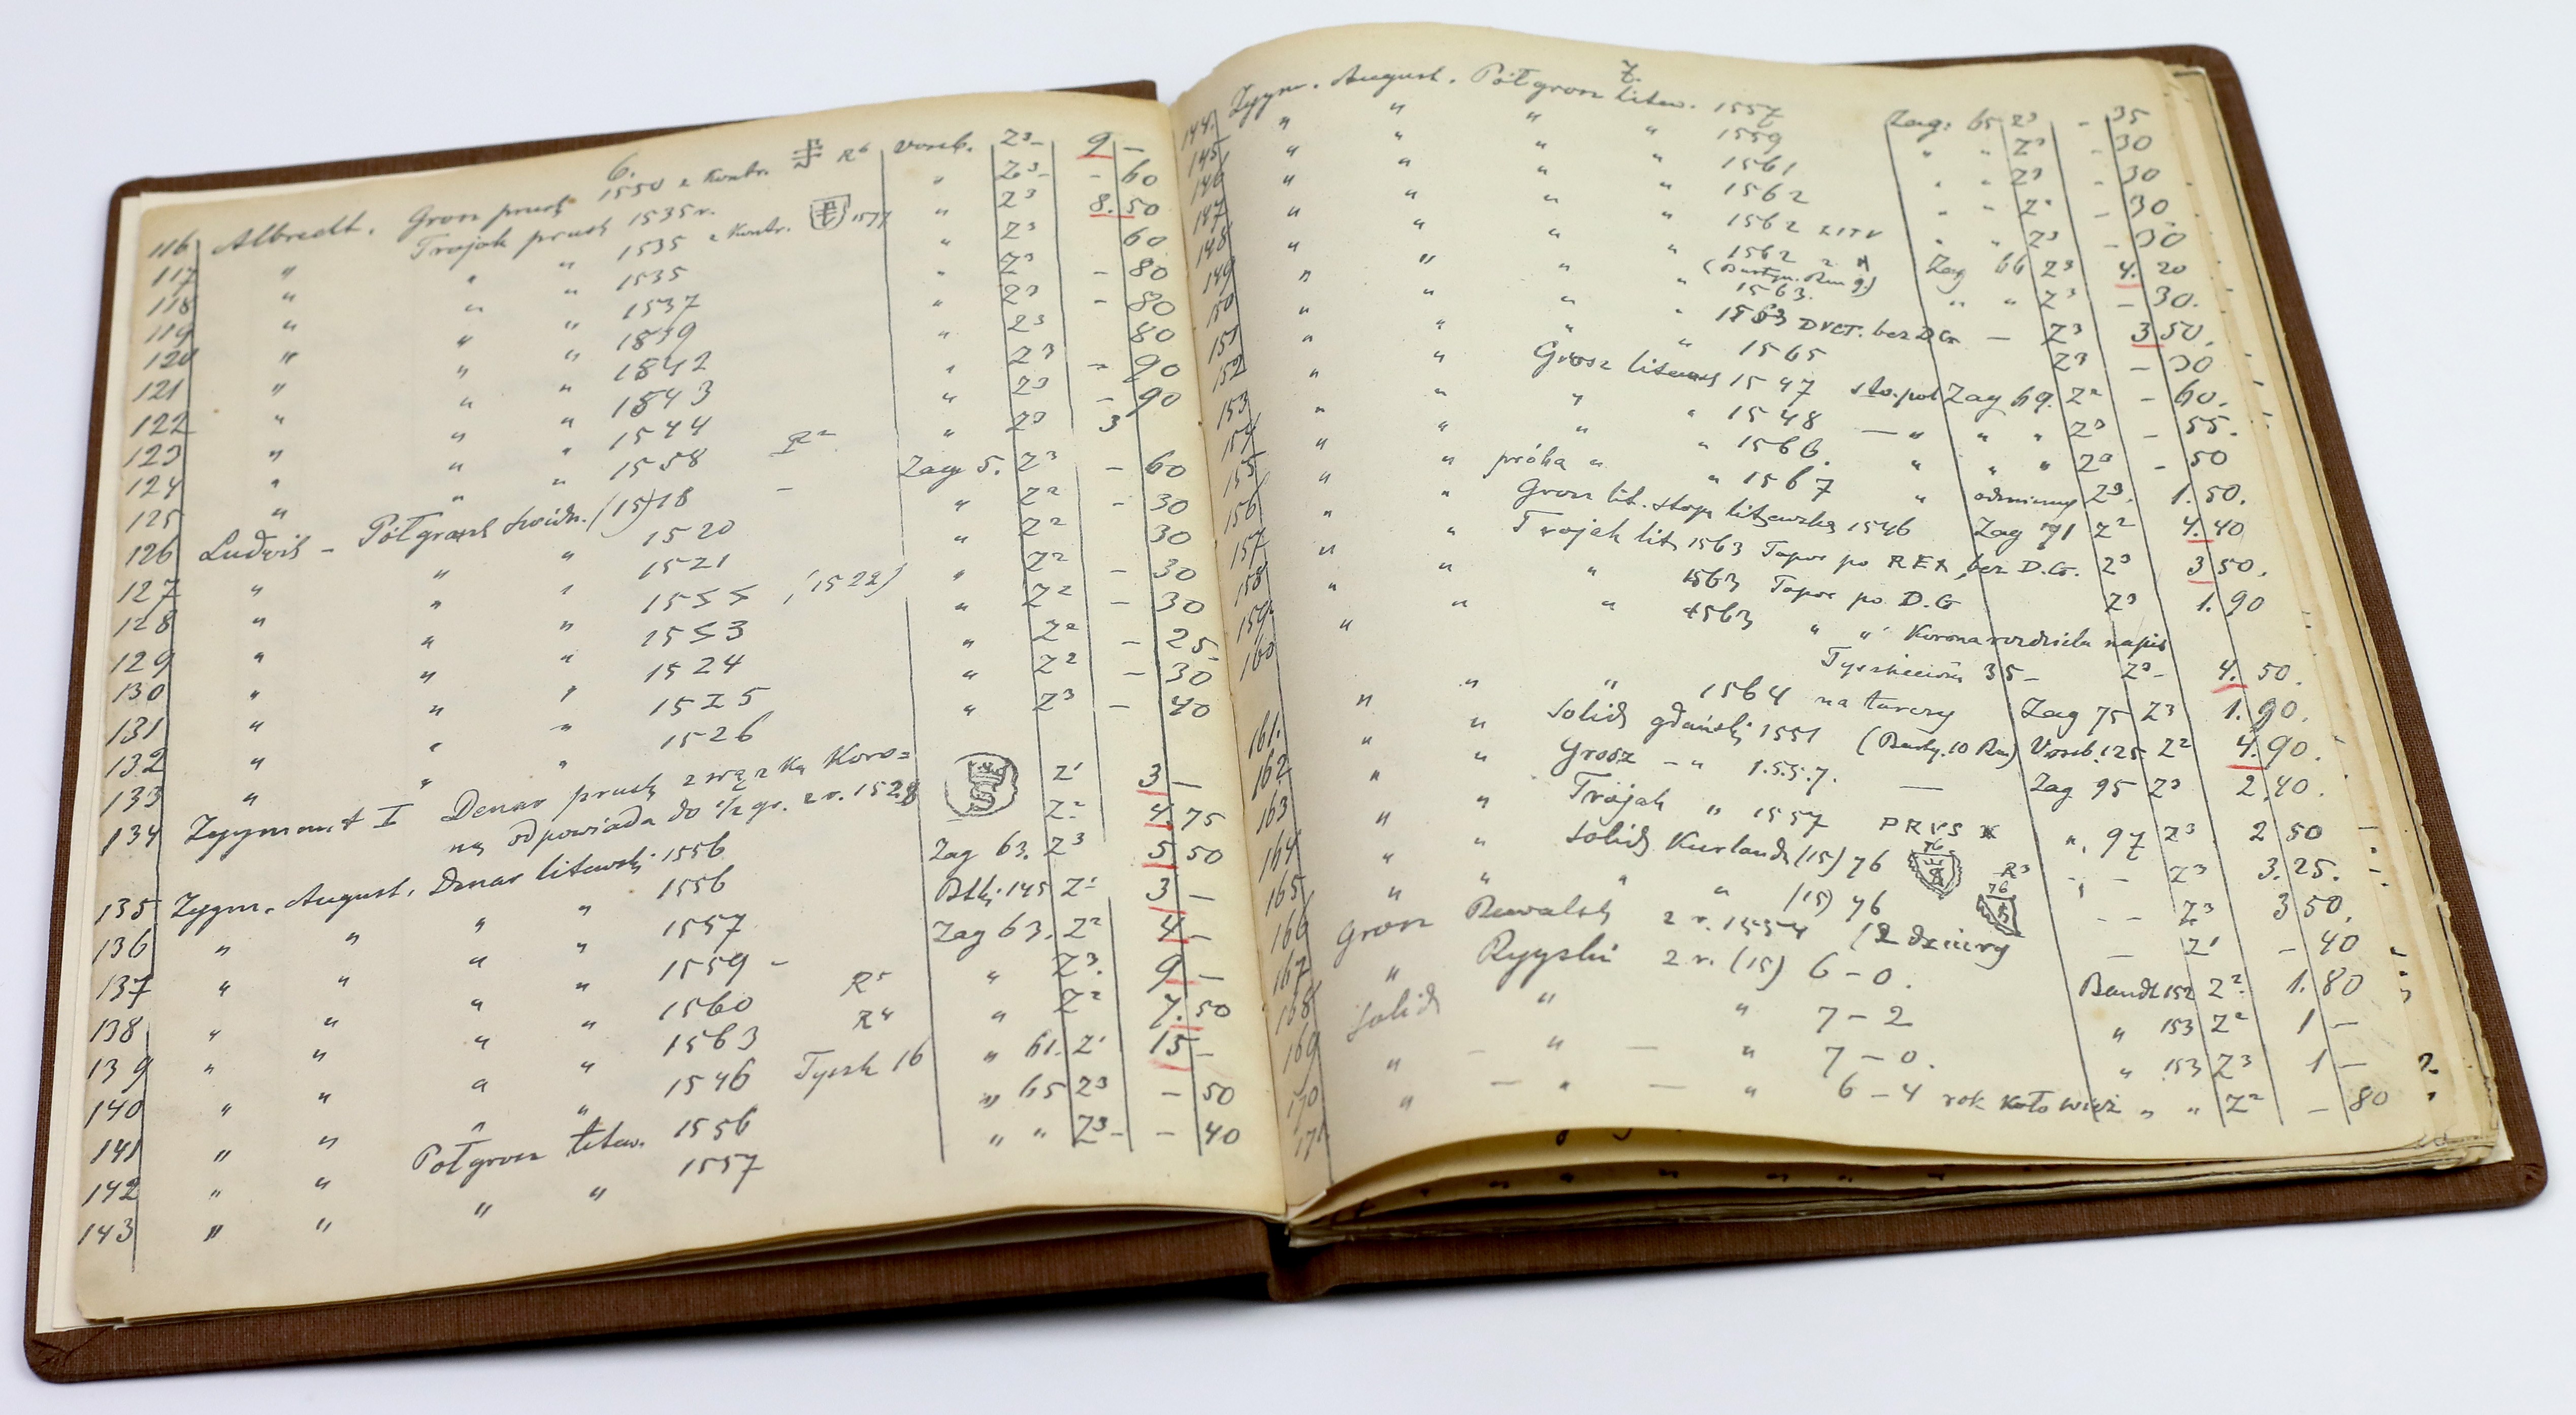 6.
116 Albrecht. Grosz prusk 1550 z Kontr. R6 Vossb. Z3- 9 -
117 " Trojak prusk 1535 r. " Z3- - 60
118 " " " 1535 z Kontr. 1577 " Z3 8. 50
119 " " " 1535 " Z3 60
120 " " " 1537 " Z3 - 80
121 " " " 1839 " Z3 - 80
122 " " " 1842 " Z3 80
123 " " " 1843 " Z3 - 90
124 " " " 1544 " Z3 - 90
125 " " " 1558 R2 " Z3 3
126 Ludwik - Półgrosz świdn. (15)18 - Zag 5. Z3 - 60
127 " " " 1520 " Z2 - 30
128 " " " 1521 " Z2 30
129 " " " 15SS (1522) " Z2 - 30
130 " " " 15S3 " Z2 - 30
131 " " " 1524 " Z2 - 25
132 " " " 15Z5 " Z2 - 30
133 " " " 1526 " Z3 - 40
134 Zygmunt I Denar prusk z wązką Koro=
ną odpowiada do 1/2 gr. z r. 1528 S Z1 3 -
135 Zygm. August. Denar litewsk 1556 Zag 63. Z2 4. 75
136 " " " " 1556 Z3 5 50
137 " " " " 1557 145 Z1 3 -
138 " " " " 1559 - Zag 63. Z2 4 -
139 " " " " 1560 R5 " Z3. 9 -
140 " " " " 1563 R4 " Z2 7. 50
141 " " " " 1546 Tyszk 16 " 61. Z1 15 -
142 " " Półgrosz litew. 1556 " 65 Z3 - 50
143 " " " " 1557 " " Z3 - - 40
7.
144. Zygm. August. Półgrosz litew. 1557 Zag: 65 Z3 - 35
145 " " " " 1559 " " Z3 - 30
146 " " " " 1561 " " Z3 - 30
147 " " " " 1562 " " Z2 - 30
148 " " " " 1562 LITV " " Z3 - 30
149 " " " " 1562 z Zag 66 Z3 4. 20
150 " " " " 1563. " " Z3 - 30.
151 " " " " 1563 DVCT. bez DG - Z3 3 50.
152 " " " " 1565 Z3 - 30
153 " " Grosz litewsk 1547 sto. pol Zag 69. Z2 - 60.
154 " " " " 1548 - " " " Z3 - 55.
155 " " " " 1566. " " " Z2 - 50
156 " " próba " " 1567 " odmienny Z3. 1. 50.
157 " " Grosz lit. stopa litewska 1546 Zag 71 Z2 4. 40
158 " " Trojak lit 1563 Topor po REX, bez D.G. Z3 3 50.
159 " " " 1563 Topor po D.G Z3 1. 90
160 " " " 1563 " " Korona rozdziela napis
Tyszkiewicz 35 - Z3- 4. 50.
161. " " " 1564 na tarczy Zag 75 Z3 1. 90.
162 " " Solid gdański 1551 Vossb. 125 Z2 4. 90.
163 " " Grosz - " 1.5.5.7. - Zag 95 Z3 2. 40.
164 " " Trojak " 1557 PRVS ". 97 Z3 2 50
165 " " Solid Kurland (15) 76 76 R3 - - Z3 3. 25.
166 " " " " (15) 76 76 - - Z3 3 50.
167 Grosz Rewalsk z r. 1554 (2 dziury - Z1 - 40
168 " Rygski z r. (15) 6 - 0. Bandt 152 Z2. 1. 80
169 Solid " " 7 - 2 " 153 Z2 1 -
170 " - " - " 7 - 0. " 153 Z3 1 -
171 " - " - " 6 - 4 rok koło wież " " Z2 - 80